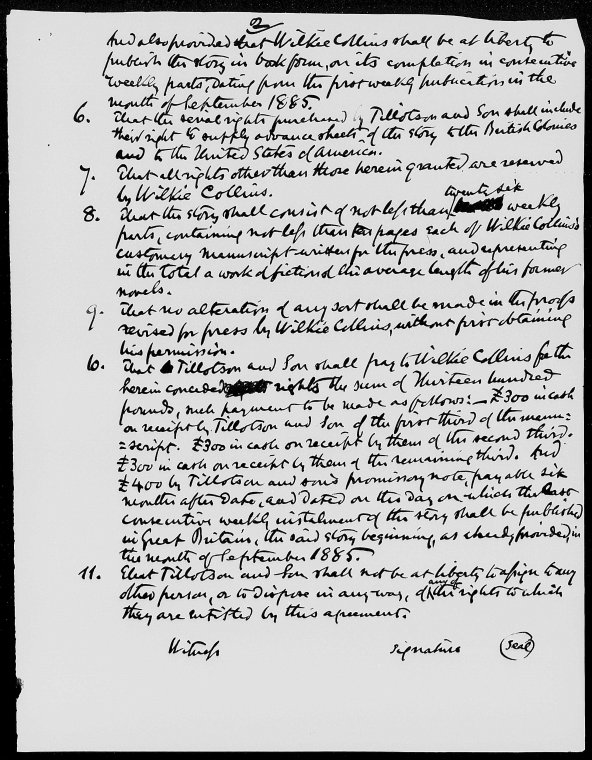 2
And also provided that Wilkie Collins shall be at liberty to
publish the story in book form, on its completion in consecutive
weekly parts, dating from the first weekly publication in the
month of September 1885.
6. That the serial rights purchased by Tillotson and Son shall include
their right to supply advance sheets of the story to the British Colonies
and to the United States of America.
7. That all rights other than those herein granted are reserved
by Wilkie Collins.
twenty six
8. That the story shall consist of not less than weekly
parts, containing not less than ten pages each of Wilkie Collins's
customary manuscript written for the press, and representing
in the total a work of fiction of the average length of his former
novels.
9. That no alteration of any sort shall be made in the proofs
revised for press by Wilkie Collins, without first obtaining
his permission.
10. That Tillotson and Son shall pay to Wilkie Collins for the
herein conceded rights the sum of Thirteen hundred
pounds, such payment to be made as follows:— £300 in cash
on receipt by Tillotson and Son of the first third of the manu=
=script. £300 in cash on receipt by them of the second third.
£300 in cash on receipt by them of the remaining third. And
£400 by Tillotson and Son's promissory note, payable six
months after date, and dated on the day on which the last
consecutive weekly instalment of the story shall be published
in Great Britain, the said story beginning, as already provided, in
the month of September 1885.
11. That Tillotson and Son shall not be at liberty to assign to any
other person, or to dispose in any way, of any of the rights to which
they are entitled by this agreement.
Witness signature Seal